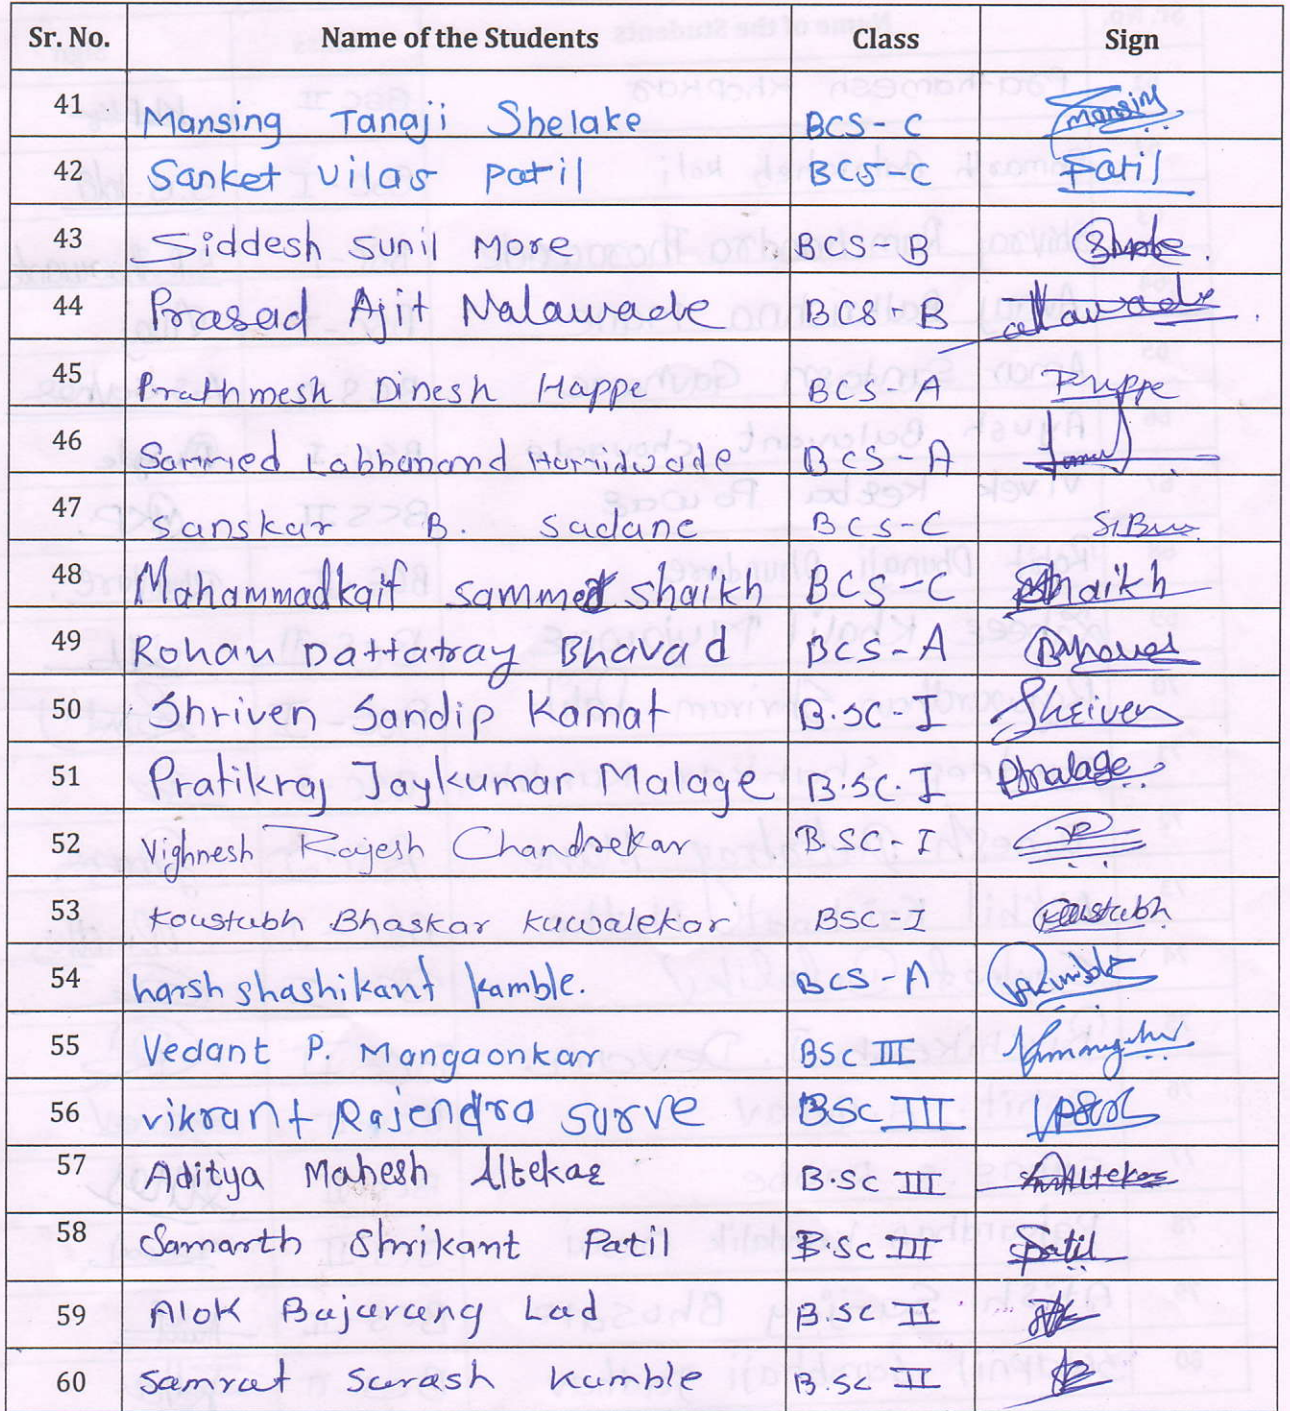 Sr. No. Name of the Students Class Sign
41 Mansing Tanaji Shelake BCS-C Mansing
42 Sanket Vilas Patil BCS-C Patil
43 Siddesh Sunil More BCS-B
44 Prasad Ajit Nalawade BCS-B
45 Prathmesh Dinesh Happe BCS-A
46 Sammed Labhanand Harridwade BCS-A
47 Sanskar B. Sadane BCS-C
48 Mahammadkaif sammed shaikh BCS-C Shaikh
49 Rohan Dattatray Bhavad BCS-A
50 Shriven Sandip Kamat B.SC-I Shriven
51 Pratikraj Jaykumar Malage B.SC.I
52 Vighnesh Rajesh Chandrekar B.SC-I
53 Koustubh Bhaskar Kawalekar BSC-I Koustubh
54 harsh shashikant kamble. BCS-A
55 Vedant P. Mangaonkar BSc III
56 vikrant Rajendra surve BSc III
57 Aditya Mahesh Altekar B.Sc III
58 Samarth Shrikant Patil B.Sc III Patil
59 Alok Bajarang Lad B.Sc II
60 Samrat Surash Kamble B.Sc II